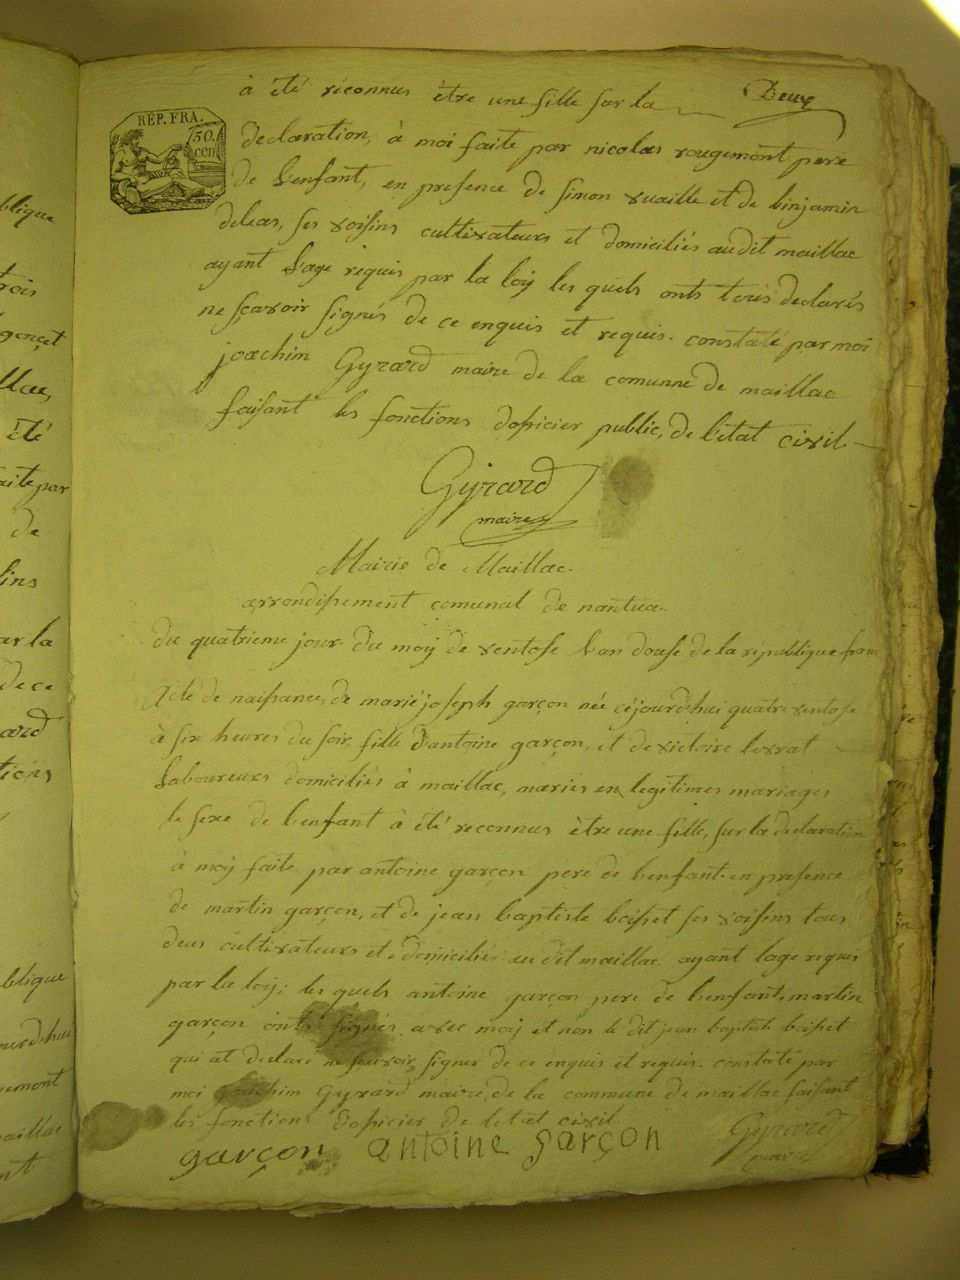 à été reconnus être une fille sur la
Deux
REP. FRA.
50.
cen
declaration, à moi faite par nicolas rougemont pere
de L'enfant, en presence de simon vuaille et de binjamin
deleas, ses voisins cultivateurs et domiciliés audit maillac
ayant L'age requis par la loy les quels onts tous declarés
ne sçavoir signés de ce enquis et requis. constaté par moi
joachim Gyrard maire de la comunne de maillac
faisant les fonctions dopicier public, de l'etat civil
Gyrard
maire
Mairie de Maillac.
arrondissement comunal de nantua.
du quatrieme jour du moy de ventose L'an douse de la republique franc
Acte de naissance, de marie joseph garçon née cejourdhui quatre ventose
à six heures du soir, fille d'antoine garçon, et de victoire levrat
Laboureurs domiciliés à maillac, mariés en legitimes mariages
le sexe de l'enfant à été reconnus être une fille, sur la declaration
à moy faite par antoine garçon pere de l'enfant en presence
de martin garçon, et de jean baptiste boisset ses voisins tous
deux cultivateurs et domiciliés au dit maillac ayant lage requis
par la loy; les quels antoine garçon pere de l'enfant, martin
garçon onts signés avec moy et non le dit jean baptiste boisset
qui at declaré ne sçavoir signer de ce enquis et requis. constaté par
moi joachim Gyrard maire, de la commune de maillac faisant
les fonctions dopicier de l'etat civil
garçon antoine garçon
Gyrard
maire